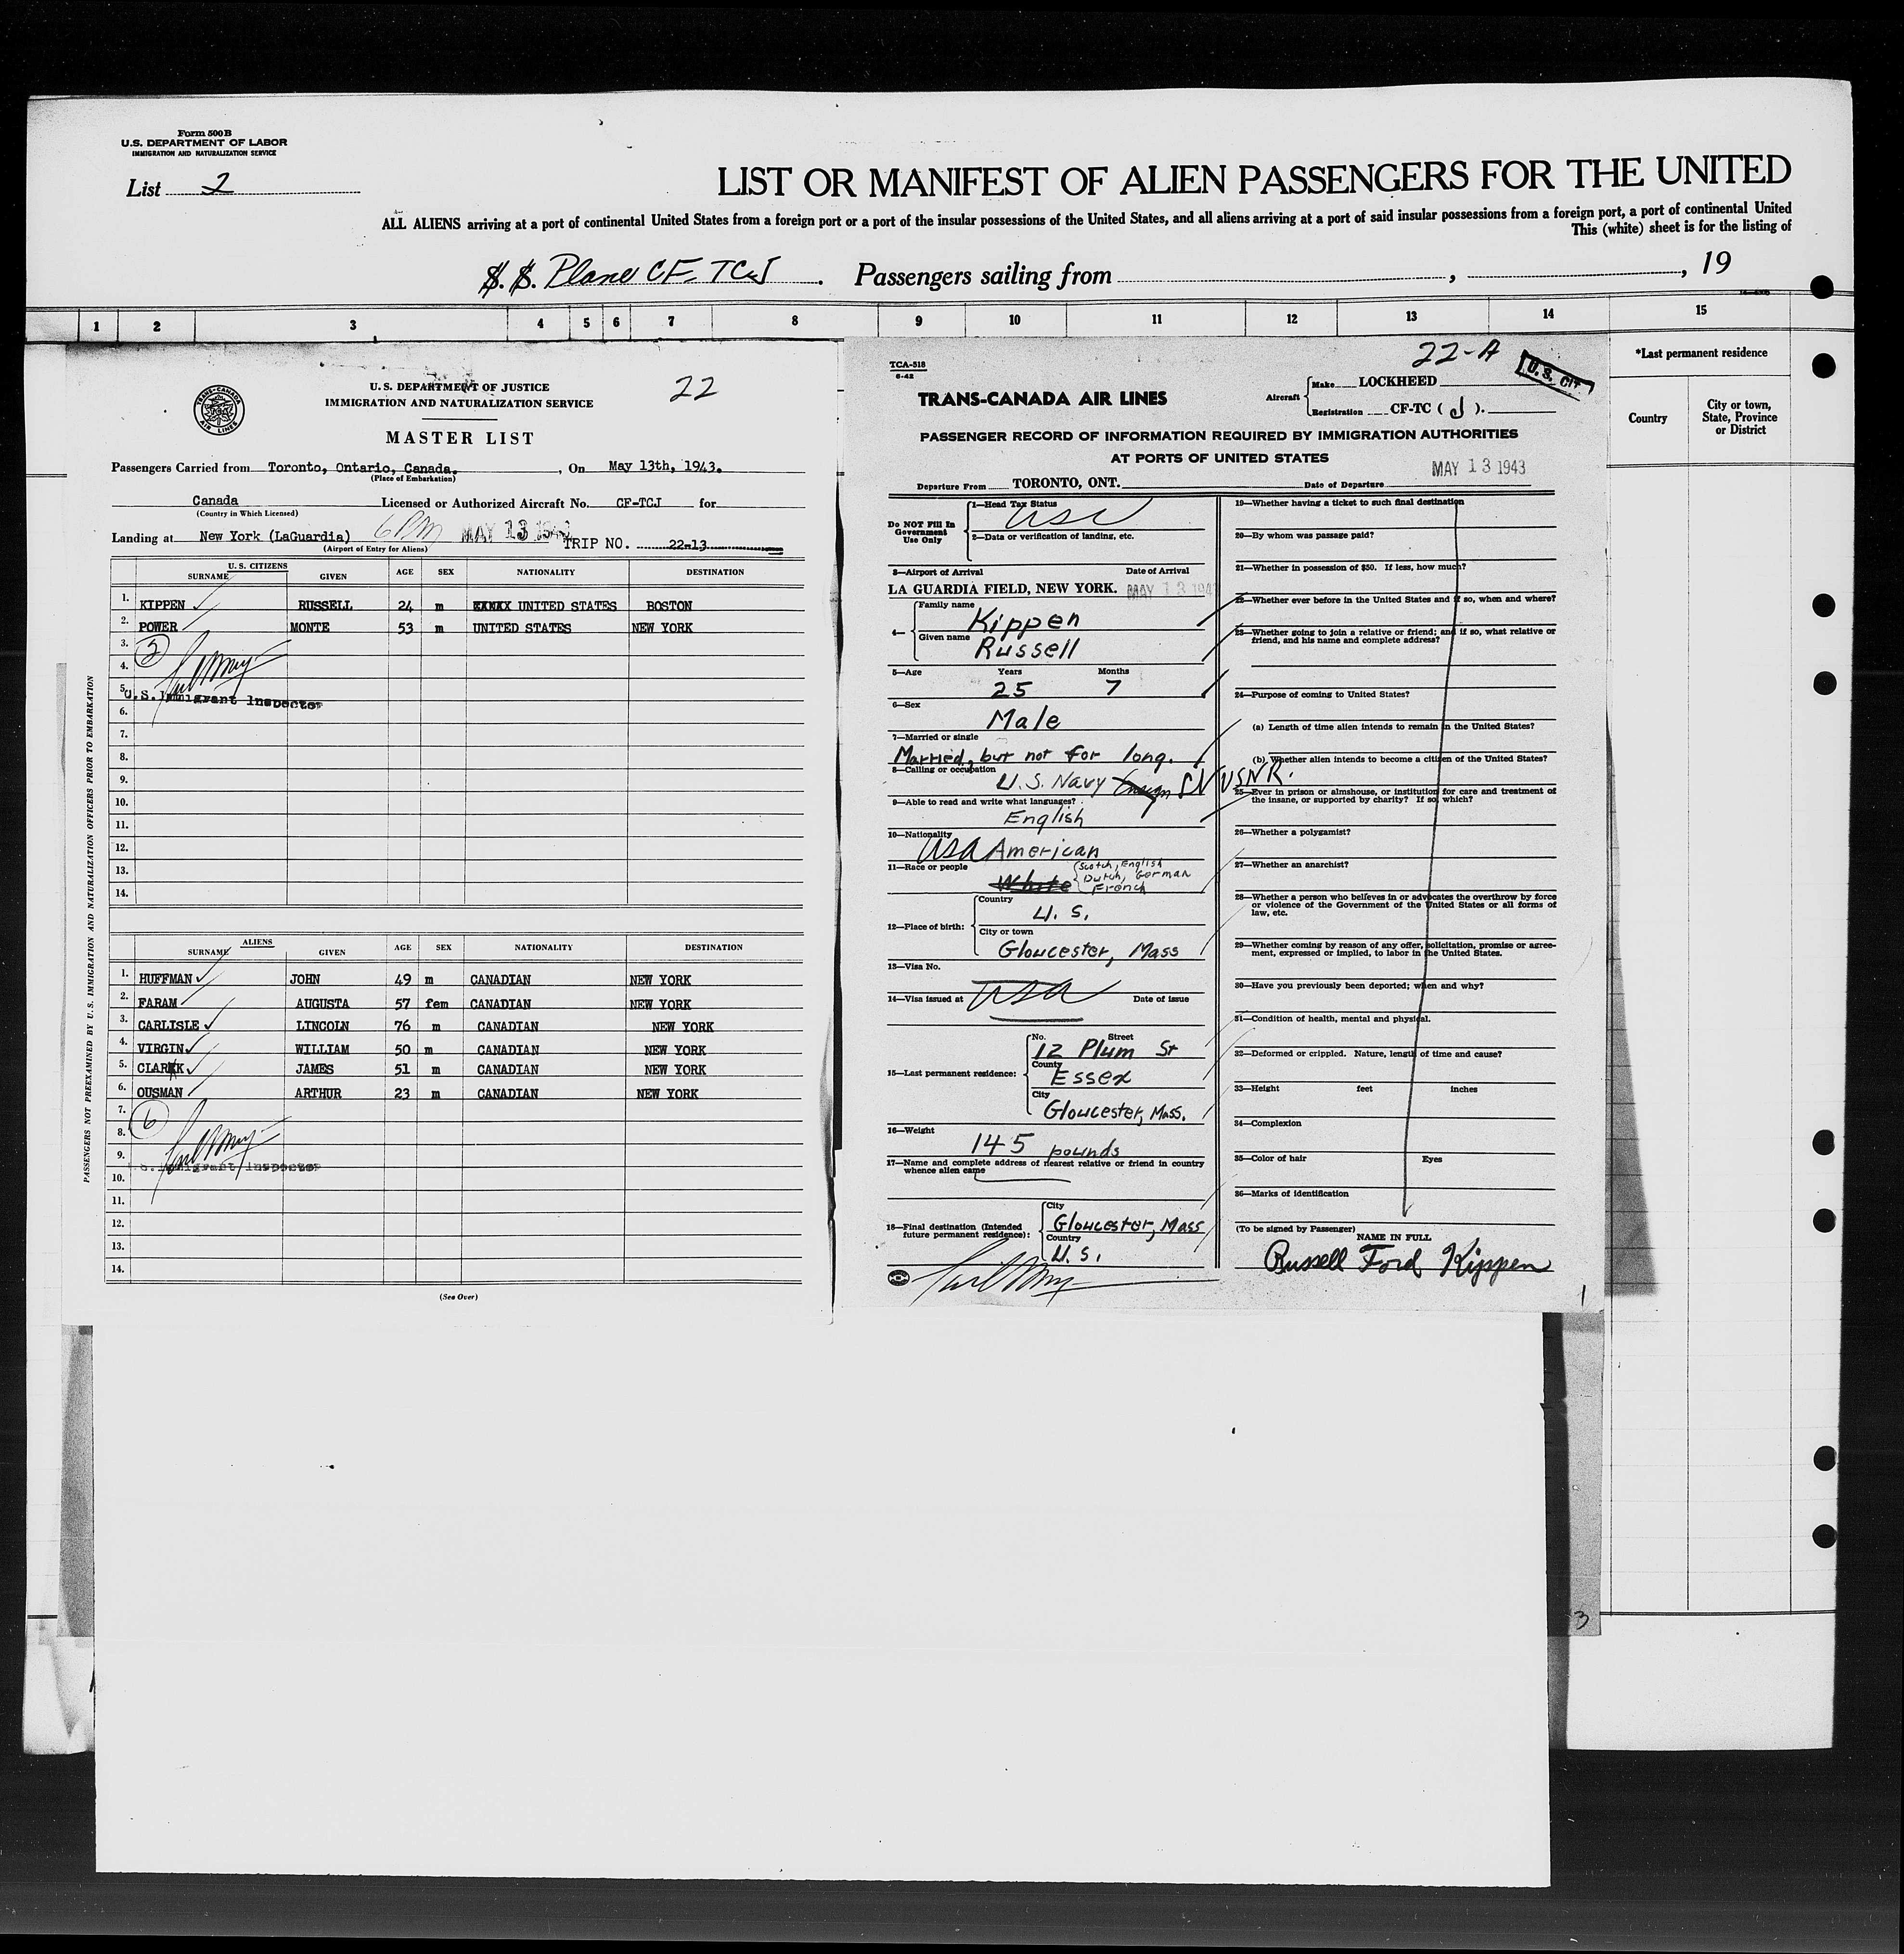 Form 500 B
U.S. DEPARTMENT OF LABOR
IMMIGRATION AND NATURALIZATION SERVICE
List 2
LIST OR MANIFEST OF ALIEN PASSENGERS FOR THE UNITED
ALL ALIENS arriving at a port of continental United States from a foreign port or a port of the insular possessions of the United States, and all aliens arriving at a port of said insular possessions from a foreign port, a port of continental United
This (white) sheet is for the listing of
S. S. Plane CF-TCJ. Passengers sailing from , , 19
1 2 3 4 5 6 7 8 9 10 11 12 13 14 15
*Last permanent residence
Country
City or town, State, Province or District
TRANS-CANADA AIR LINES
U. S. DEPARTMENT OF JUSTICE
IMMIGRATION AND NATURALIZATION SERVICE
22
MASTER LIST
Passengers Carried from Toronto, Ontario, Canada. , On May 13th, 1943.
(Place of Embarkation)
Canada Licensed or Authorized Aircraft No. CF-TCJ for
(Country in Which Licensed)
Landing at New York (LaGuardia) 6 PM MAY 13 1943 TRIP NO. 22-13
(Airport of Entry for Aliens)
U. S. CITIZENS
SURNAME GIVEN AGE SEX NATIONALITY DESTINATION
1. KIPPEN RUSSELL 24 m UNITED STATES BOSTON
2. POWER MONTE 53 m UNITED STATES NEW YORK
3.
4.
5. U.S. Immigrant Inspector
6.
7.
8.
9.
10.
11.
12.
13.
14.
ALIENS
SURNAME GIVEN AGE SEX NATIONALITY DESTINATION
1. HUFFMAN JOHN 49 m CANADIAN NEW YORK
2. FARAM AUGUSTA 57 fem CANADIAN NEW YORK
3. CARLISLE LINCOLN 76 m CANADIAN NEW YORK
4. VIRGIN WILLIAM 50 m CANADIAN NEW YORK
5. CLARK JAMES 51 m CANADIAN NEW YORK
6. OUSMAN ARTHUR 23 m CANADIAN NEW YORK
7. 6
8.
9. U.S. Immigrant Inspector
10.
11.
12.
13.
14.
(See Over)
PASSENGERS NOT PREEXAMINED BY U. S. IMMIGRATION AND NATURALIZATION OFFICERS PRIOR TO EMBARKATION
TCA-518
6-42
22-A
U. S. CIT
TRANS-CANADA AIR LINES
Aircraft
Make LOCKHEED
Registration CF-TC ( J ).
PASSENGER RECORD OF INFORMATION REQUIRED BY IMMIGRATION AUTHORITIES
AT PORTS OF UNITED STATES
MAY 13 1943
Departure From TORONTO, ONT. Date of Departure
Do NOT Fill In Government Use Only
1—Head Tax Status
USC
2—Data or verification of landing, etc.
3—Airport of Arrival Date of Arrival
LA GUARDIA FIELD, NEW YORK. MAY 13 194
4— Family name Kippen
Given name Russell
5—Age Years Months
25 7
6—Sex
Male
7—Married or single
Married, but not for long.
8—Calling or occupation
U. S. Navy Ensign USNR.
9—Able to read and write what languages?
English
10—Nationality
USA American
11—Race or people
White Scotch, English
Dutch, German
French
12—Place of birth: Country
U. S.
City or town
Gloucester, Mass
13—Visa No.
14—Visa issued at USA Date of issue
15—Last permanent residence: No. Street
12 Plum St
County
Essex
City
Gloucester, Mass.
16—Weight
145 pounds
17—Name and complete address of nearest relative or friend in country whence alien came
18—Final destination (Intended future permanent residence): City
Gloucester, Mass
Country
U. S.
19—Whether having a ticket to such final destination
20—By whom was passage paid?
21—Whether in possession of $50. If less, how much?
22—Whether ever before in the United States and if so, when and where?
23—Whether going to join a relative or friend; and if so, what relative or friend, and his name and complete address?
24—Purpose of coming to United States?
(a) Length of time alien intends to remain in the United States?
(b) Whether alien intends to become a citizen of the United States?
25—Ever in prison or almshouse, or institution for care and treatment of the insane, or supported by charity? If so, which?
26—Whether a polygamist?
27—Whether an anarchist?
28—Whether a person who believes in or advocates the overthrow by force or violence of the Government of the United States or all forms of law, etc.
29—Whether coming by reason of any offer, solicitation, promise or agreement, expressed or implied, to labor in the United States.
30—Have you previously been deported; when and why?
31—Condition of health, mental and physical.
32—Deformed or crippled. Nature, length of time and cause?
33—Height feet inches
34—Complexion
35—Color of hair Eyes
36—Marks of identification
(To be signed by Passenger)
NAME IN FULL
Russell Ford Kippen
1
3